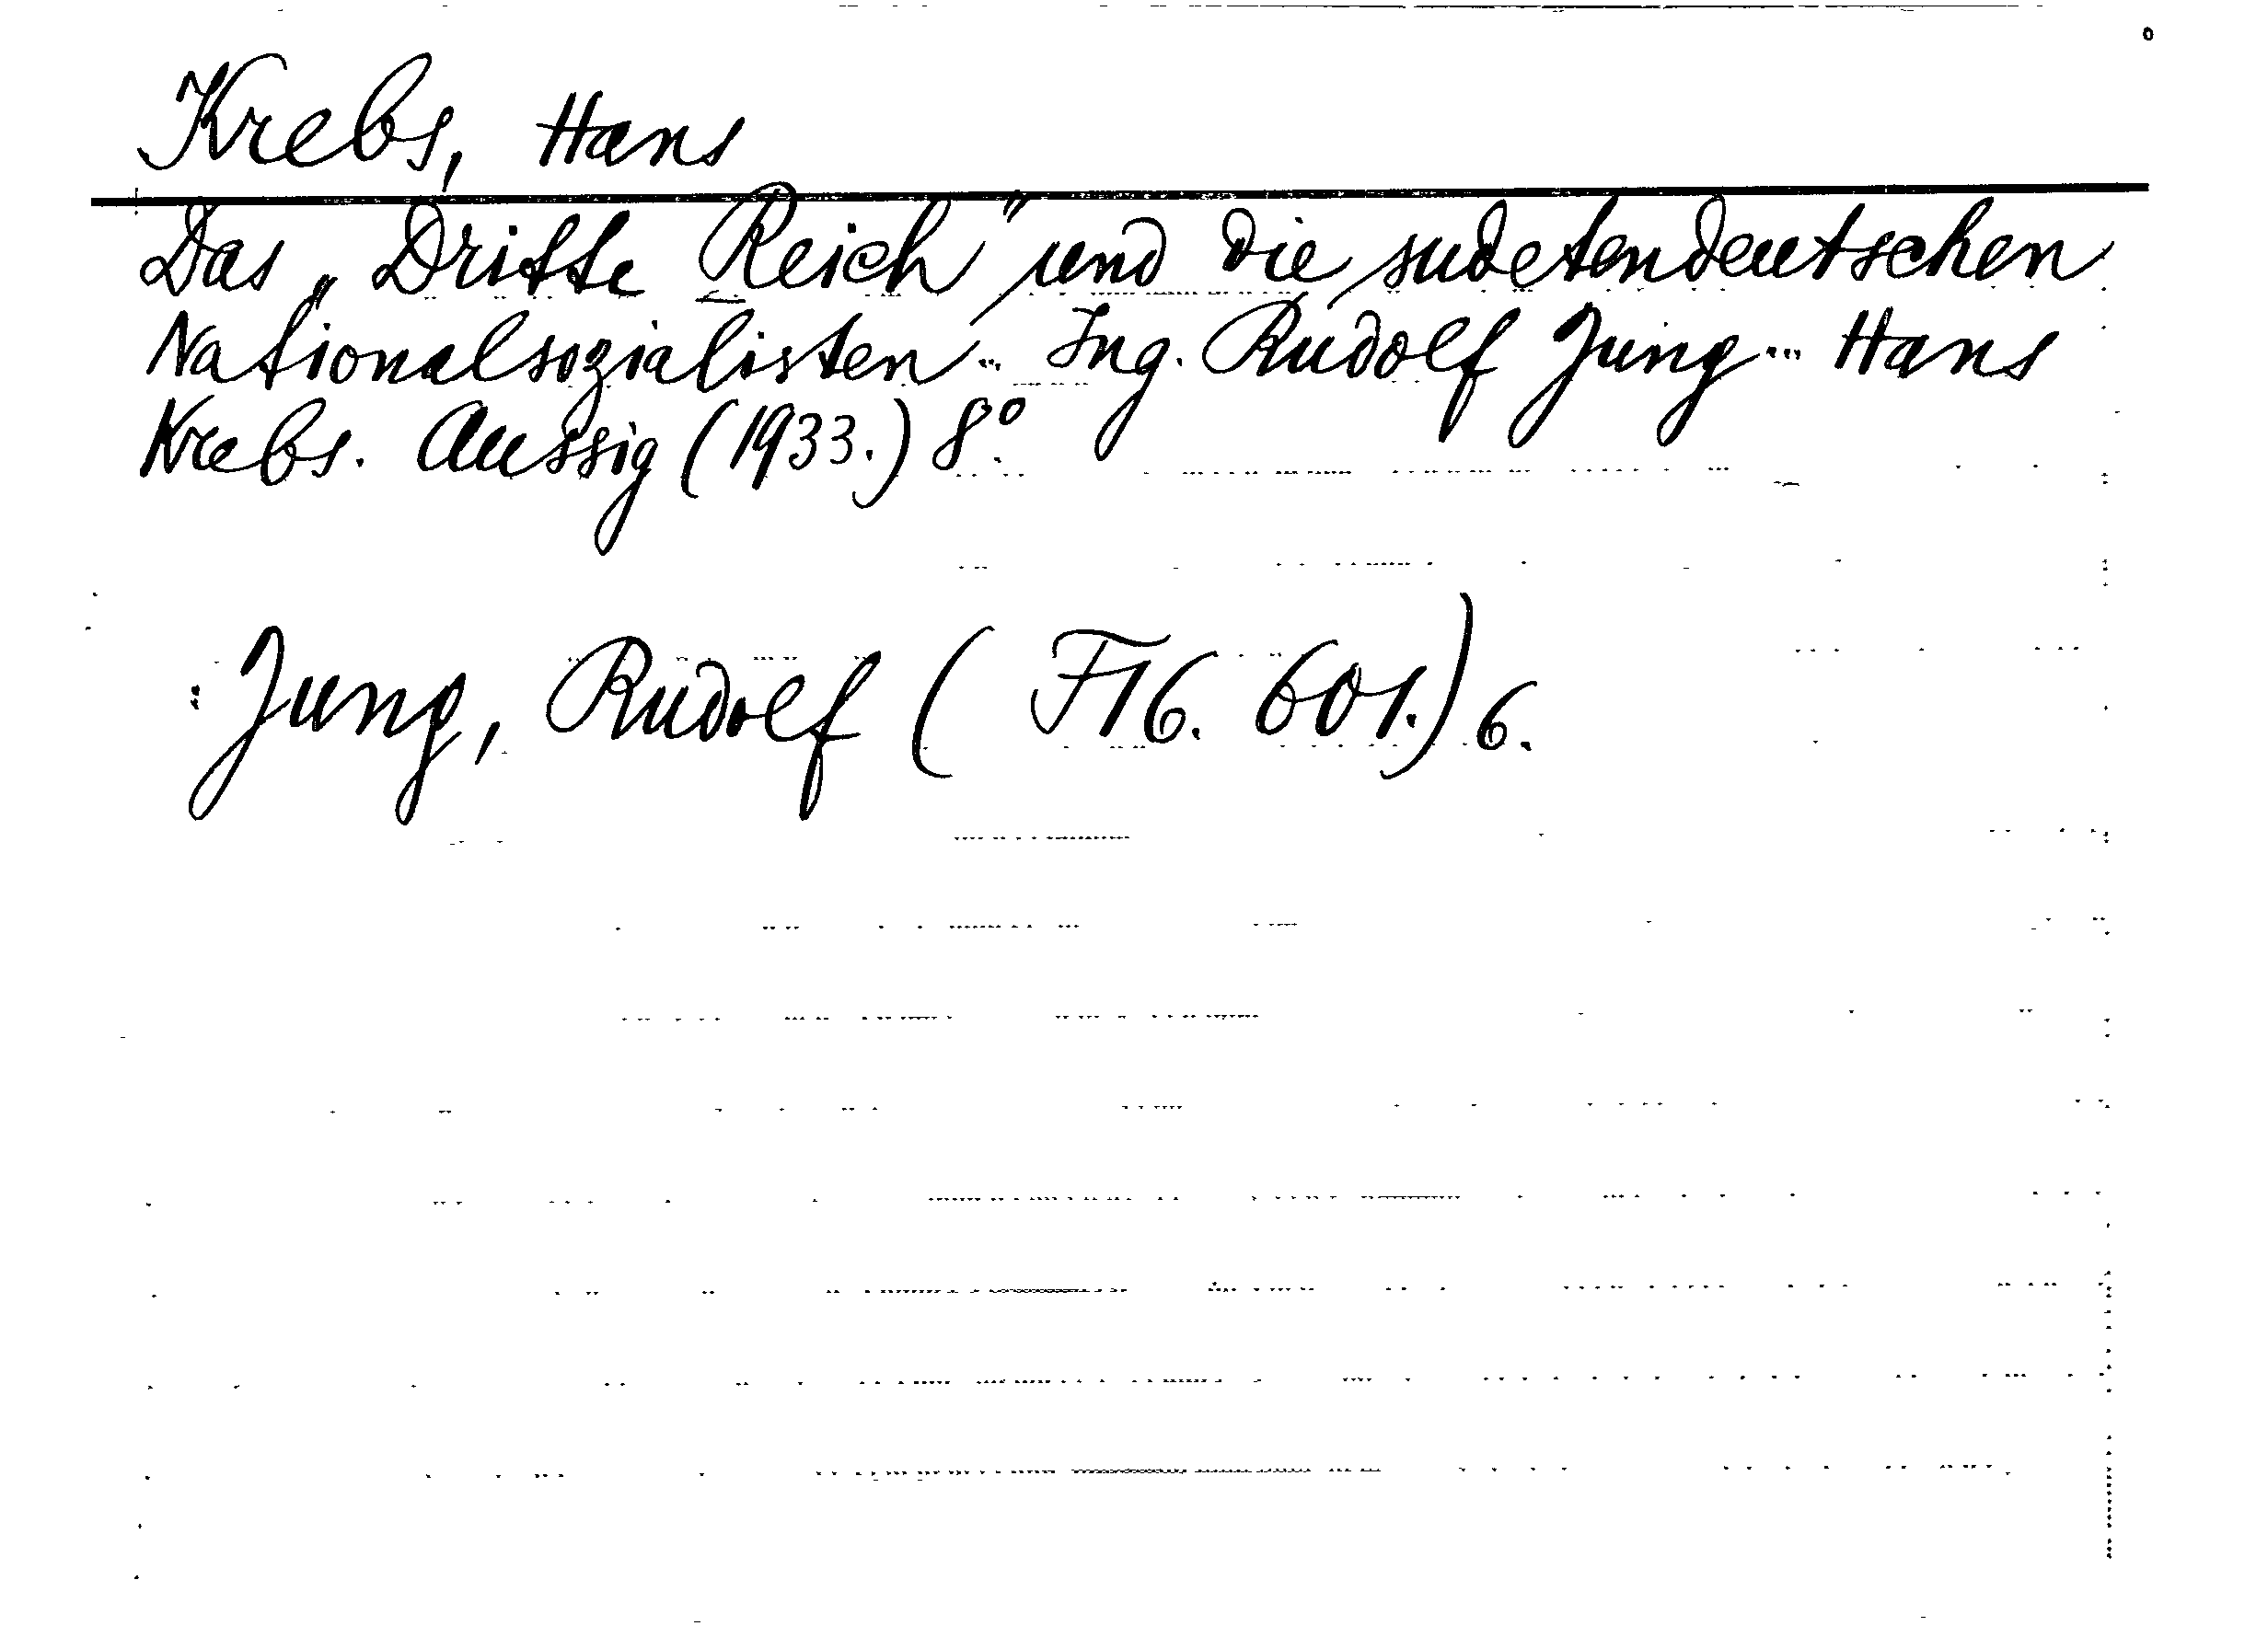 Krebs, Hans
Das „Dritte Reich" und die sudetendeutschen
Nationalsozialisten... Ing. Rudolf Jung... Hans
Krebs. Aussig (1933.) 8°.
Jung, Rudolf (F16. 601.) 6.